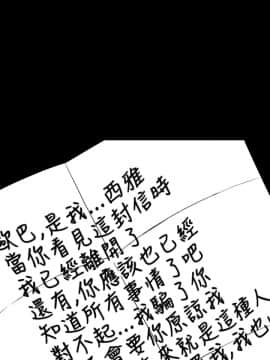 歐巴，是我…西雅
當你看見這封信時
我已經離開了
還有，你應該也已經
知道所有事情了吧
對不起…我騙了你
會要你原諒我
來就是這種人
我也